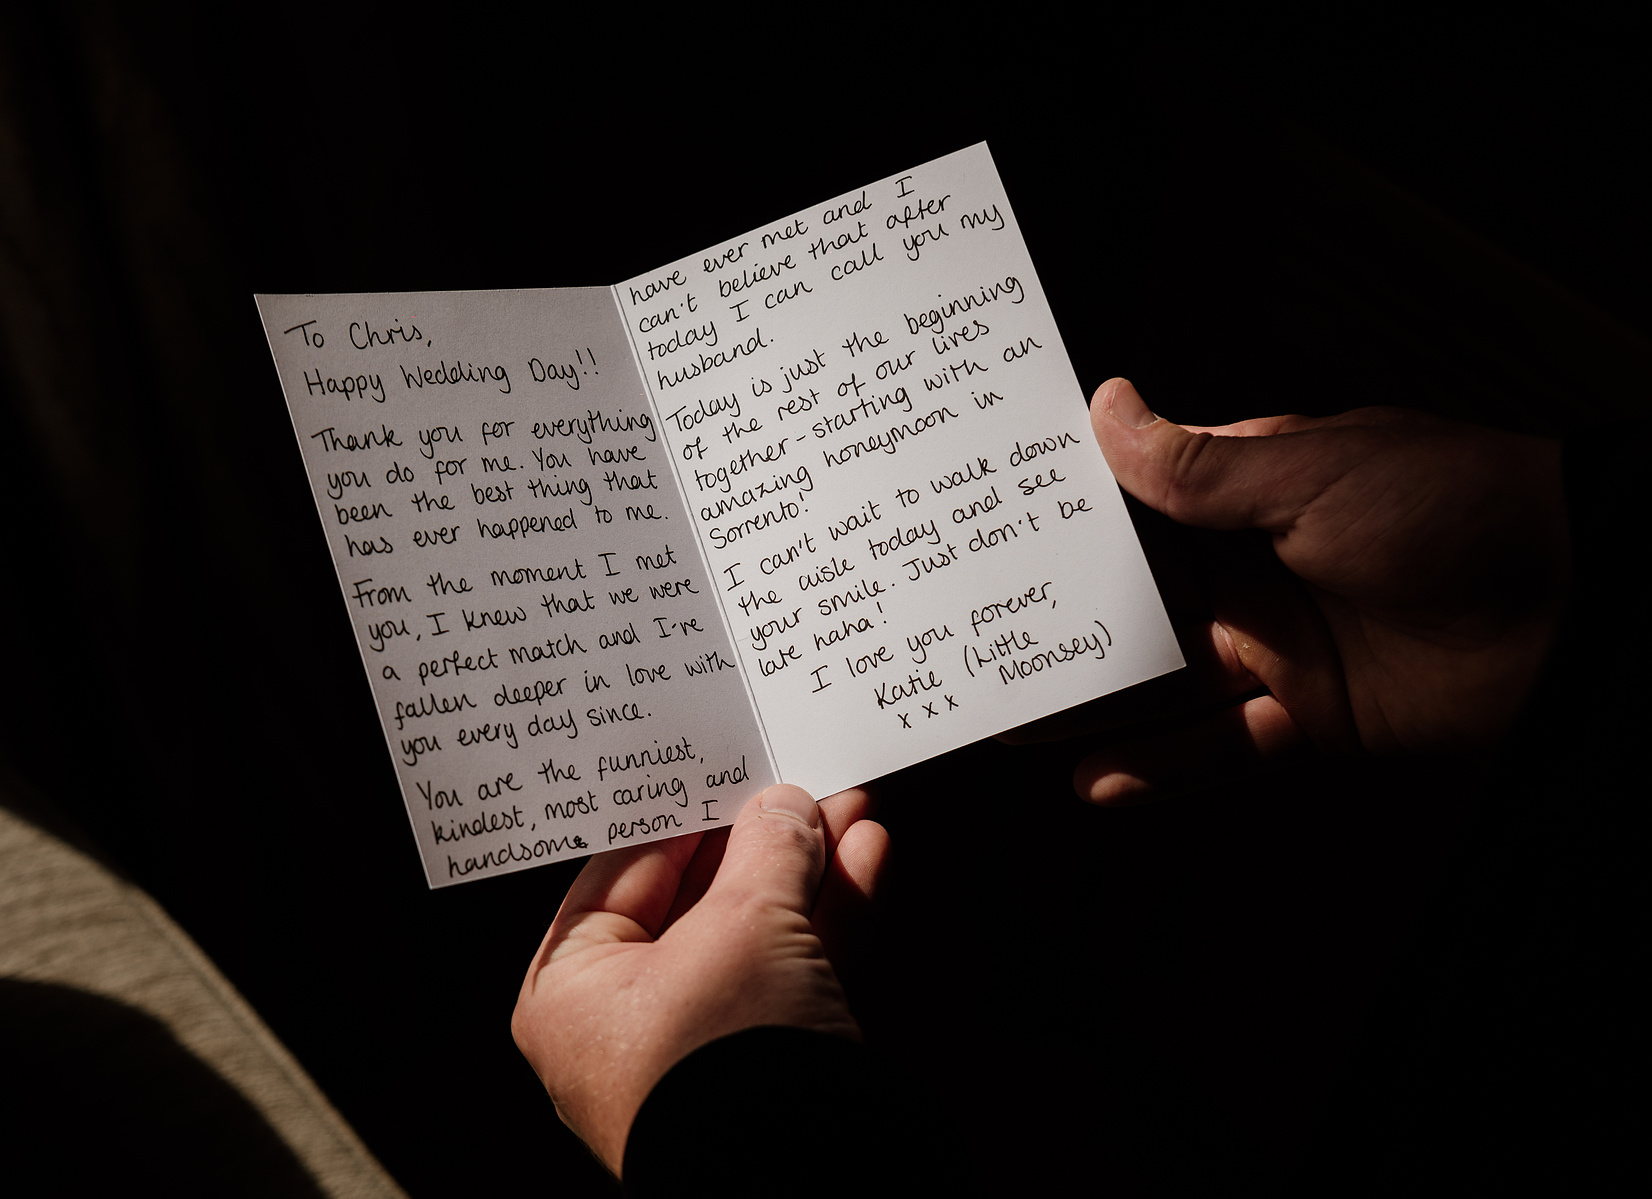 To Chris,
Happy Wedding Day!!
Thank you for everything
you do for me. You have
been the best thing that
has ever happened to me.
From the moment I met
you, I knew that we were
a perfect match and I've
fallen deeper in love with
you every day since.
You are the funniest,
kindest, most caring and
handsome person I
have ever met and I
can't believe that after
today I can call you my
husband.
Today is just the beginning
of the rest of our lives
together - starting with an
amazing honeymoon in
Sorrento!
I can't wait to walk down
the aisle today and see
your smile. Just don't be
late haha!
I love you forever,
Katie (Little
Moonsey)
x x x